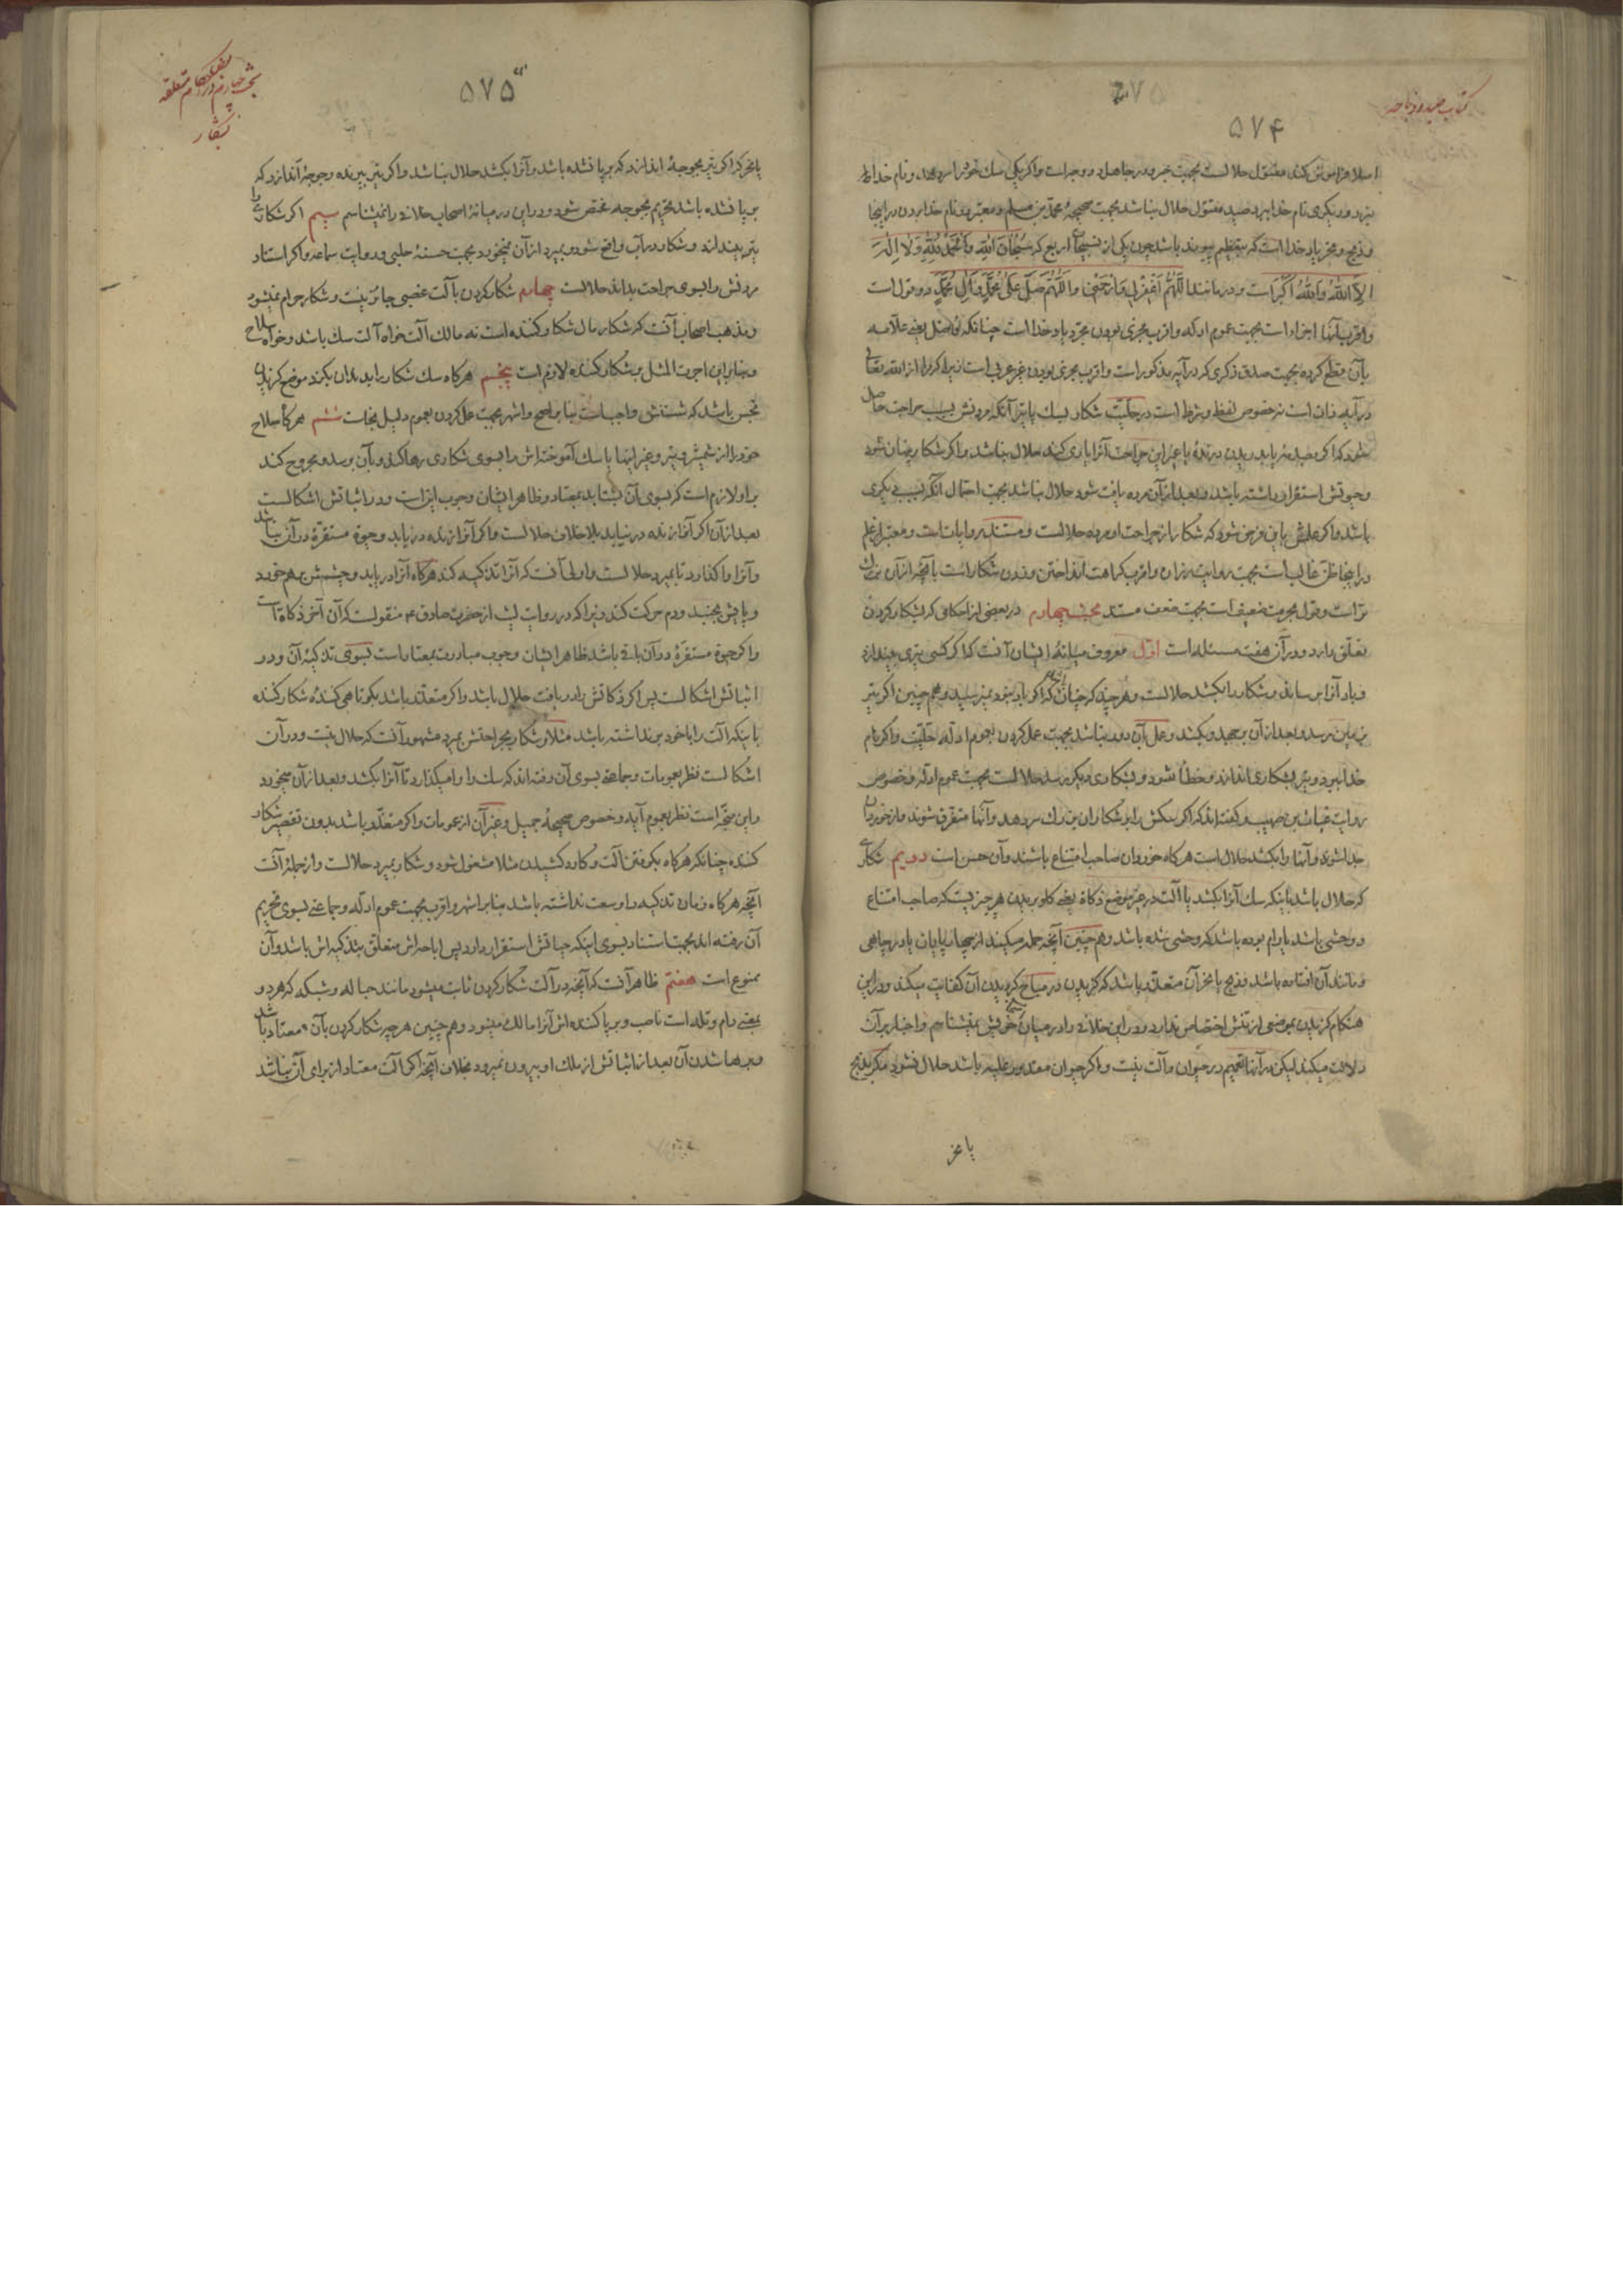 کتاب صید و ذباحه
۵۷۴
اسلا فراموش کند مقتول حلالست بجهت خبر و در جاهل دو وجه است و اگر یکی سک خود را سر دهد و نام خدا را
نبرد و دیگری نام خدا ببرد صید مقتول حلال نباشد بجهت صحیحهٔ محمد بن مسلم و معتبر در نام خدا بردن در اینجا
و ذبح و نحر یاد خدا است که بتعظیم پیوند باشد چون یکی از تسبیحات اربع که سُبْحانَ اللهِ وَالْحَمْدُ لِلّهِ وَلا اِلهَ
اِلاَّ اللهُ وَاللهُ اَکْبَرُ است و در مانند اَللّهُمَّ اغْفِرْ لِی وَارْحَمْنِی وَ اَللّهُمَّ صَلِّ عَلی مُحَمَّدٍ وَآلِ مُحَمَّدٍ دو قول است
و اقرب آنها اجزاء است بجهت عموم ادله و اقرب مجزی نبودن مجرد یاد خدا است چنانکه فاضل یعنی علامه
بآن قطع کرده بجهت صدق ذکری که در آیه مذکور است و اقرب مجزی نبودن غیر عربی است زیرا که مراد از الله تعالی
در آیه ذات است نه خصوص لفظ و شرط است در حلیت شکار بسک یا تیر آنکه مردنش بسبب جراحت حاصل
شود که اگر بصید ضرباید دریدن درندهٔ یا غیر این جراحت آنرا یاری کند حلال نباشد و اگر شکار پنهان شود
و حیوتش استقرار داشته باشد و بعد از آن مرده یافت شود حلال نباشد بجهت احتمال آنکه بسبب دیگری
باشد و اگر علمش باین فرض شود که شکار از جراحت او مرده حلالست و مستند روایات است و معتبر از علم
در اینجا ظن غالب است بجهت روایت زراره و اقرب کراهت انداختن و زدن شکار است بآنچه از آن بزرک
تر است و قول بحرمت ضعیف است بجهت ضعف مستند بحث چهارم در بعضی از احکامی که بشکار کردن
تعلق دارد و در آن هفت مسئله است اول معروف میانهٔ ایشان آنست که اگر کسی تیری بیندازد
و باد آنرا برساند و شکار را بکشد حلالست و هر چند که چنان باشد که اگر باد نبود نمیرسید و هم چنین اگر تیر
بزمین برسد بعد از آن برجهد و بکشد و عمل آن دور نباشد بجهت عمل کردن بعموم ادله حلیت و اگر نام
خدا ببرد و تیر بشکاری اندازد و خطا شود و بشکاری دیگر برسد حلالست بجهت عموم ادله و خصوص
روایت عباد بن صهیب و گفته اند که اگر سکش را بر شکاران بزرک سر دهد و آنها متفرق شوند و از خوردان
جدا شوند و آنها را بکشد حلال است هر کاه خوردان صاحب امتناع باشند و آن حسن است دویم شکاری
که حلال باشد باینکه سک آنرا بکشد یا آلت در غیر موضع ذکاة یعنی کلو بریدن هر چیز نیست که صاحب امتناع
و وحشی باشد یا رام بوده باشد که وحشی شده باشد و هم چنین آنچه حمله میکند از چهار پایان یا در چاهی
و مانند آن افتاده باشد و ذبح یا نحر آن متعذر باشد که کزیدن در مباح کردیدن آن کفایت میکند و در این
هنکام کزیدن بموضعی از تنش اختصاص ندارد و در این خلافی را در میان شیخ خویش نمیشناسم و اخبار بر آن
دلالت میکند لیکن در آنها تعمیم در حیوان و آلت نیست و اگر حیوان مقدور علیه باشد حلال نشود مگر بذبح
یا نحر
بحث چهارم در بعضی احکام متعلقه
بشکار
۵۷۵
یا نحر که اگر تیر بجوجهٔ اندازد که بر پا نشده باشد و آنرا بکشد حلال نباشد و اگر تیر بپرنده و جوجهٔ اندازد که
بر پا نشده باشد تحریم بجوجه مختص شود و در این در میانهٔ اصحاب خلافی را نمیشناسم سیم اگر شکاری را
تیر بیندازد و شکار در آب واقع شود و بمیرد از آن نمیخورد بجهت حسنهٔ حلبی و روایت سماعه و اگر استاد
مردنش را بسوی جراحت بداند حلالست چهارم شکار کردن بآلت غصبی جائز نیست و شکار حرام نمیشود
و مذهب اصحاب آنست که شکار مال شکار کننده است نه مالک آلت خواه آلت سک باشد و خواه سلاح
و بنابراین اجرت المثل بر شکار کننده لازم است پنجم هر کاه سک شکار را بدندان بکزد موضع کزیدن
نجس باشد که شستنش واجبست بنا بر اصح و اشهر بجهت عمل کردن بعموم دلیل نجاست ششم هر کاه سلاح
خود را از شمشیر و تیر و غیر اینها یا سک آموخته اش را بسوی شکاری رها کند و بآن برسد و مجروح کند
بر او لازم است که بسوی آن بشتابد بمعتاد و ظاهر ایشان وجوب این است و در اثباتش اشکالست
بعد از آن اگر آنرا زنده در نیابد بلا خلاف حلالست و اگر آنرا زنده دریابد و حیوة مستقره در آن نباشد
و آنرا واکذارد تا بمیرد حلالست و اولی آنست که آنرا تذکیه کند هر کاه آنرا دریابد و چشمش بر هم خورد
و پایش بجنبد و دم حرکت کند زیرا که در روایت لیث از حضرت صادق ع منقولست که آن آخر ذکاة است
و اگر حیوة مستقره در آن باقی باشد ظاهر ایشان وجوب مبادرت بمعتاد است بسوی تذکیهٔ آن و در
اثباتش اشکالست پس اگر ذکاتش را دریافت حلال باشد و اگر متعذر باشد بکوتاهی کنندهٔ شکار کننده
باینکه آلت را با خود بر نداشته باشد مثلا و شکار بجراحتش بمیرد مشهور آنست که حلال نیست و در آن
اشکالست نظر بعمومات و جماعتی بسوی آن رفته اند که سک را وا میکذارد تا آنرا بکشد و بعد از آن میخورد
و این متجه است نظر بعموم آیه و خصوص صحیحهٔ جمیل و غیر آن از عمومات و اگر متعذر باشد بدون تقصیر شکار
کننده چنانکه هر کاه بکرفتن آلت و کارد کشیدن مثلا مشغول شود و شکار بمیرد حلالست و از جملهٔ آنست
آنچه هر کاه زمان تذکیه را وسعت نداشته باشد بنا بر اشهر و اقرب بجهت عموم ادله و جماعتی بسوی تحریم
آن رفته اند بجهت استناد بسوی اینکه حیاتش استقرار دارد پس اباحه اش متعلق بتذکیه اش باشد و آن
ممنوع است هفتم ظاهر آنست که آنچه در آلت شکار کردن ثابت میشود مانند حباله و شبکه که هر دو
بمعنی دام و تله است ناصب و بر پا کننده اش آنرا مالک میشود و هم چنین هر چه شکار کردن بآن معتاد باشد
و برها شدن آن بعد از اثباتش از ملک او بیرون نمیرود بخلاف آنچه اگر آلت معتاد از برای آن نباشد